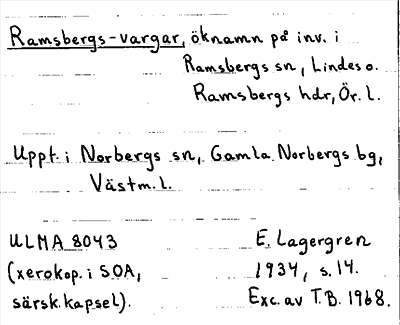 Ramsbergs-vargar, öknamn på inv. i
Ramsbergs sn, Lindes o.
Ramsbergs hdr, Ör. l.
Uppt. i Norbergs sn, Gamla Norbergs bg,
Västm. l.
ULMA 8043
(xerokop. i SOA,
särsk. kapsel).
E. Lagergren
1934, s. 14.
Exc. av T.B. 1968.